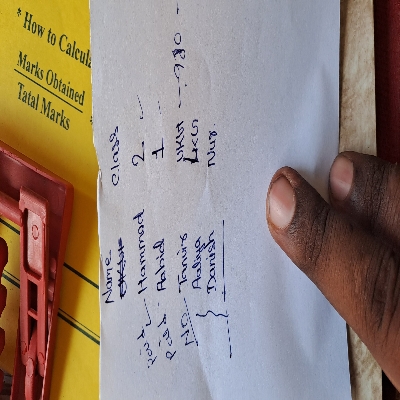 * How to Calcula
Marks Obtained
Tatal Marks
Name Class
Hammad 2 "
Aahid 1 "
Tanvir UKG - 980 -
Aaliya LKG
Danish Nur.